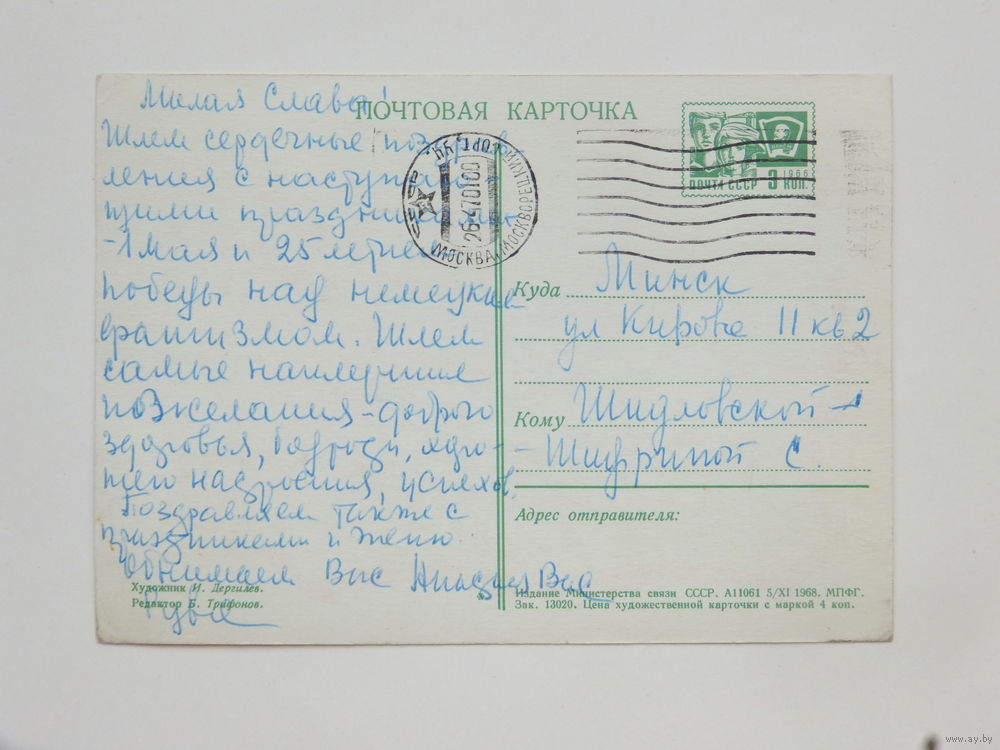 ПОЧТОВАЯ КАРТОЧКА
Милая Слава!
Шлем сердечные поздрав
ления с наступаю
щими праздниками
-1 мая и 25 летием
победы над немецким
фашизмом. Шлем
самые наилучшие
пожелания - доброго
здоровья, бодрости, хоро-
шего настроения, успехов.
Поздравляем также с
праздниками и Женю
Обнимаем Вас
Вас
Художник И. Дергилев.
Редактор Б. Трифонов.
СССР
МОСКВА МОСКВОРЕЦКИЙ
26-4 70 10 00
ПОЧТА СССР 3 КОП.
1966
Куда Минск
ул Кирова 11 кв 2
Кому Шидловской-
Шифриной С.
Адрес отправителя:
Издание Министерства связи СССР. А11061 5/XI 1968. МПФГ.
Зак. 13020. Цена художественной карточки с маркой 4 коп.
www.ay.by